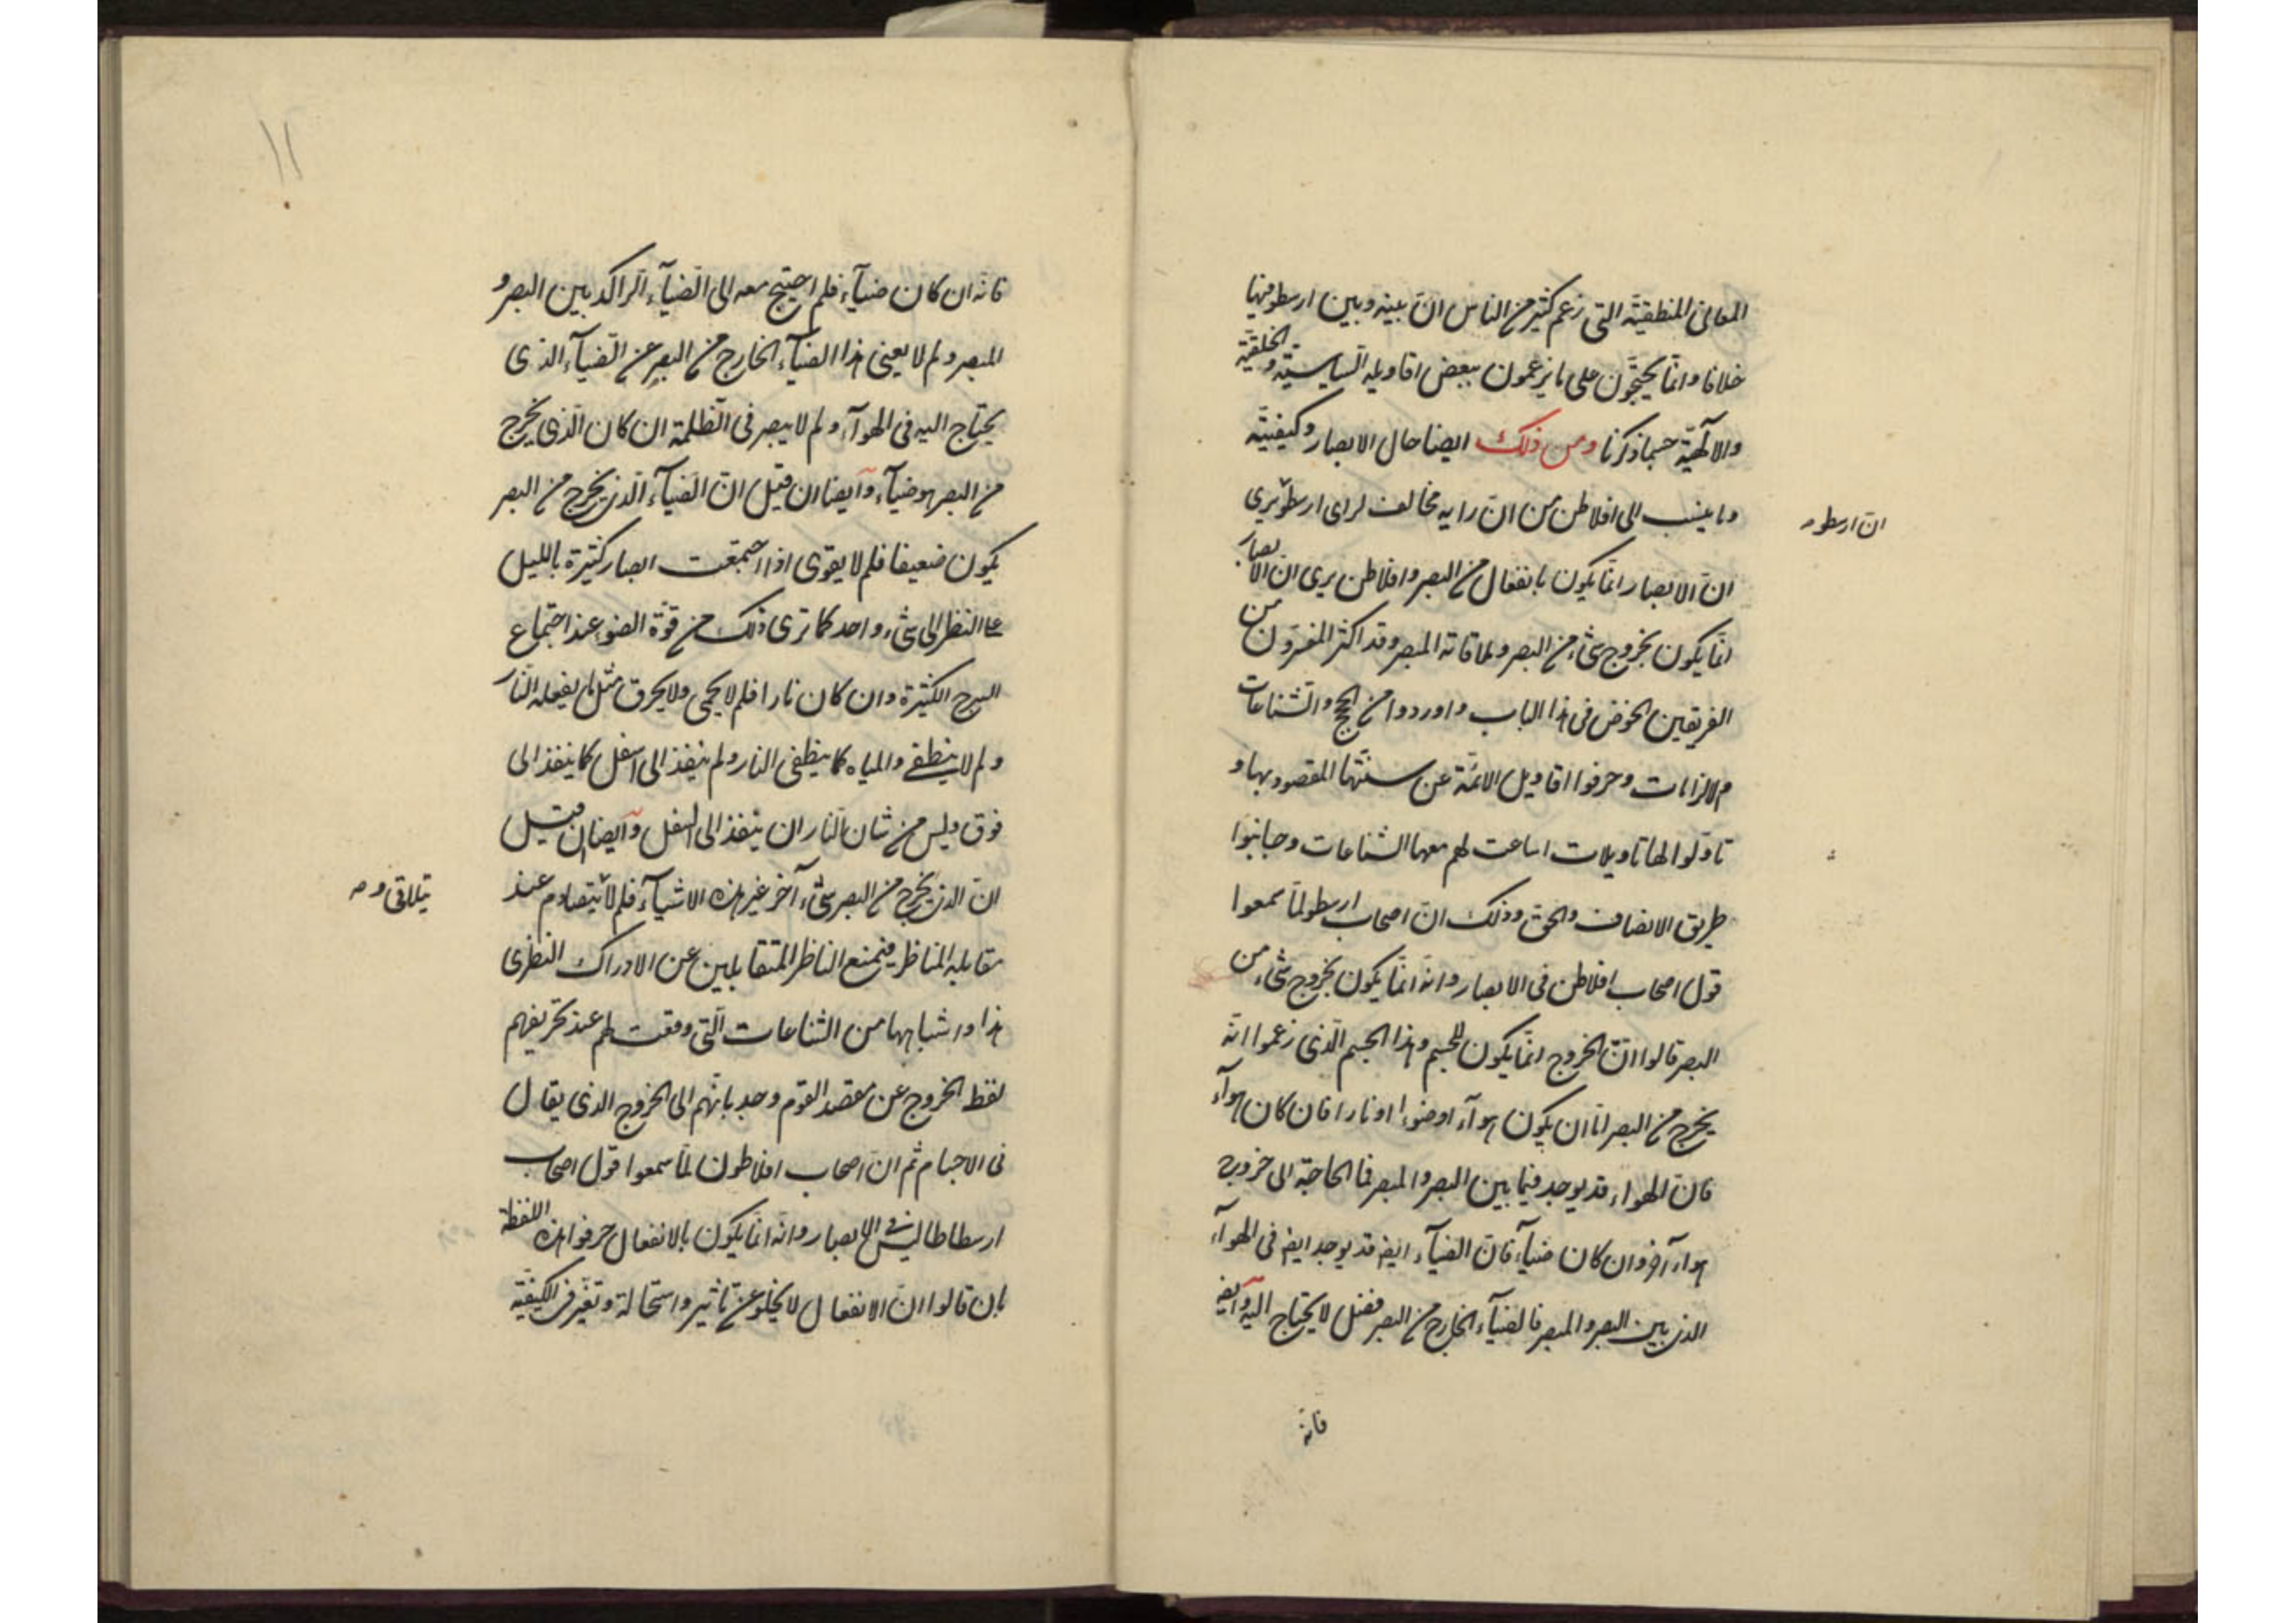 المعانى المنطقيّة التى زعم كثير من الناس انّ بينه وبين ارسطو فيها
خلافا وانّما يحتجّون على ما يزعمون ببعض اقاويله السّياسيّة والخلقيّة
والالهيّة حسبما ذكرنا ومن ذلك ايضا حال الابصار وكيفيّته
وما ينسب الى افلاطن من انّ رايه مخالف لراى ارسطو يرى
ان ارسطو
انّ الابصار انّما يكون بانفعال من البصر وافلاطن يرى ان الابصار
انّما يكون بخروج شىء من البصر وملاقاته المبصر وقد اكثر المفسرون من
الفريقين الخوض فى هذا الباب واوردوا من الحجج والشناعات
والالزامات وحرفوا اقاويل الائمّة عن سننها المقصود بها و
تاوّلوا لها تاويلات اساعت لهم معها الشناعات وجانبوا
طريق الانصاف والحق وذلك انّ اصحاب ارسطو لمّا سمعوا
قول اصحاب افلاطن فى الابصار وانّه انّما يكون بخروج شىء من
البصر قالوا انّ الخروج انّما يكون للجسم وهذا الجسم الّذى زعموا انّه
يخرج من البصر امّا ان يكون هوآء او ضوءا او نارا فان كان هوآء
فانّ الهواء قد يوجد فيما بين البصر والمبصر فما الحاجة الى خروج
هواء آخر وان كان ضيآء فانّ الضيآء ايضا قد يوجد ايضا فى الهوآء
الذى بين البصر والمبصر فالضيآء الخارج من البصر فضل لا يحتاج اليه وايضا
فانّه
١١
فانّه ان كان ضيآء فلم احتيج معه الى الضيآء الراكد بين البصر و
المبصر ولم لا يغنى هذا الضيآء الخارج من البصر عن الضيآء الذى
يحتاج اليه فى الهوآء ولم لا يبصر فى الظلمة ان كان الّذى يخرج
من البصر هو ضيآء وايضا ان قيل انّ الضيآء الّذى يخرج من البصر
يكون ضعيفا فلم لا يقوى اذا اجتمعت ابصار كثيرة بالليل
على النظر الى شىء واحد كما ترى ذلك من قوّة الضوء عند اجتماع
السرج الكثيرة وان كان نارا فلم لا يحمى ولا يحرق مثل ما يفعله النّار
ولم لا ينطفى فى المياه كما ينطفى النار ولم ينفذ الى اسفل كما ينفذ الى
فوق وليس من شان النار ان ينفذ الى اسفل وايضا ان قيل
انّ الذى يخرج من البصر شىء آخر غير هذه الاشيآء فلم لا يتصادم عند
يتلاقى و
مقابلة المناظر فيمنع الناظر المتقابلين عن الادراك النظرى
هذا واشباهها من الشناعات الّتى وقعت لهم عند تحريفهم
لفظ الخروج عن مقصد القوم وجذبانهم الى الخروج الذى يقال
فى الاجسام ثم انّ اصحاب افلاطون لمّا سمعوا قول اصحاب
ارسطاطاليس فى الابصار وانّه انّما يكون بالانفعال حرفوا هذه اللفظة
بان قالوا انّ الانفعال لا يخلو عن تاثير واستحالة وتغيّر فى الكيفيّة